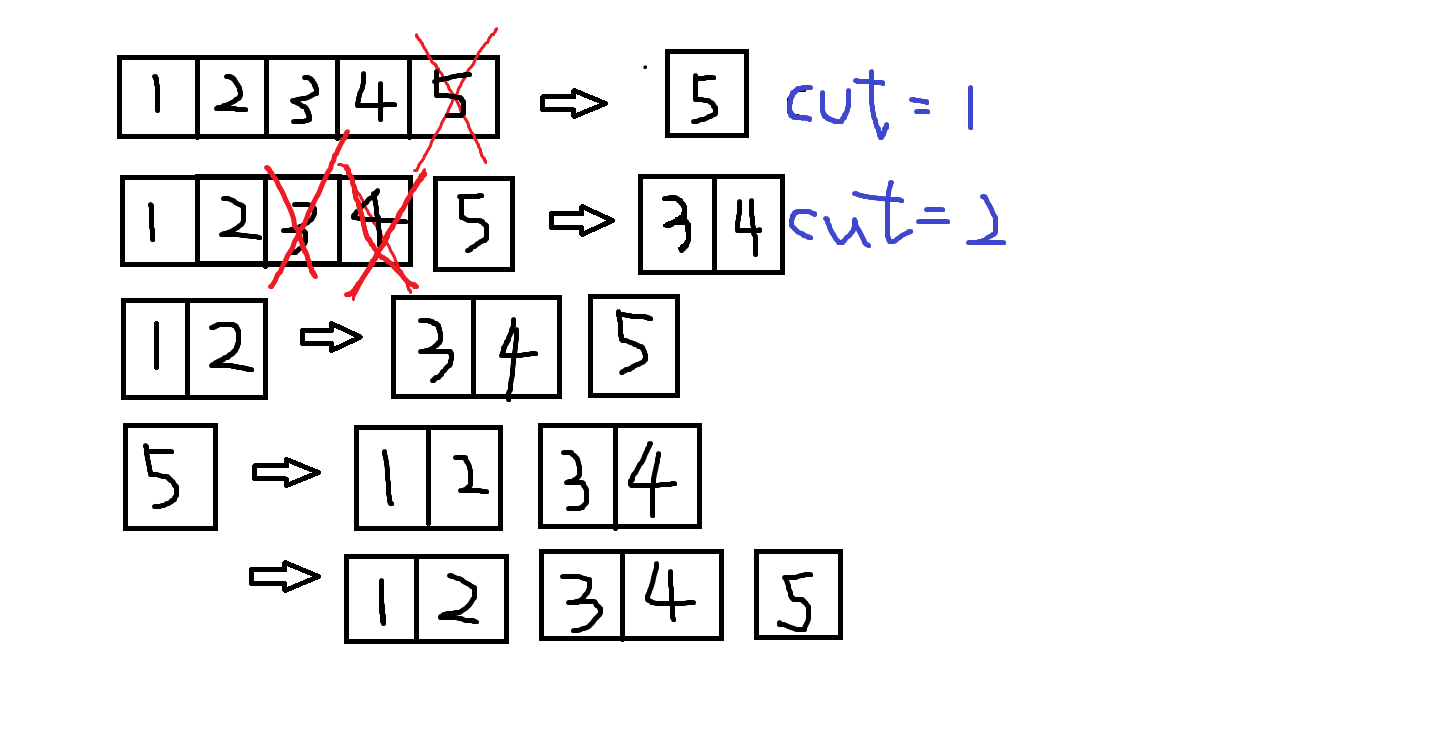 1 2 3 4 5 5 cut = 1
1 2 3 4 5 3 4 cut = 2
1 2 3 4 5
5 1 2 3 4
1 2 3 4 5